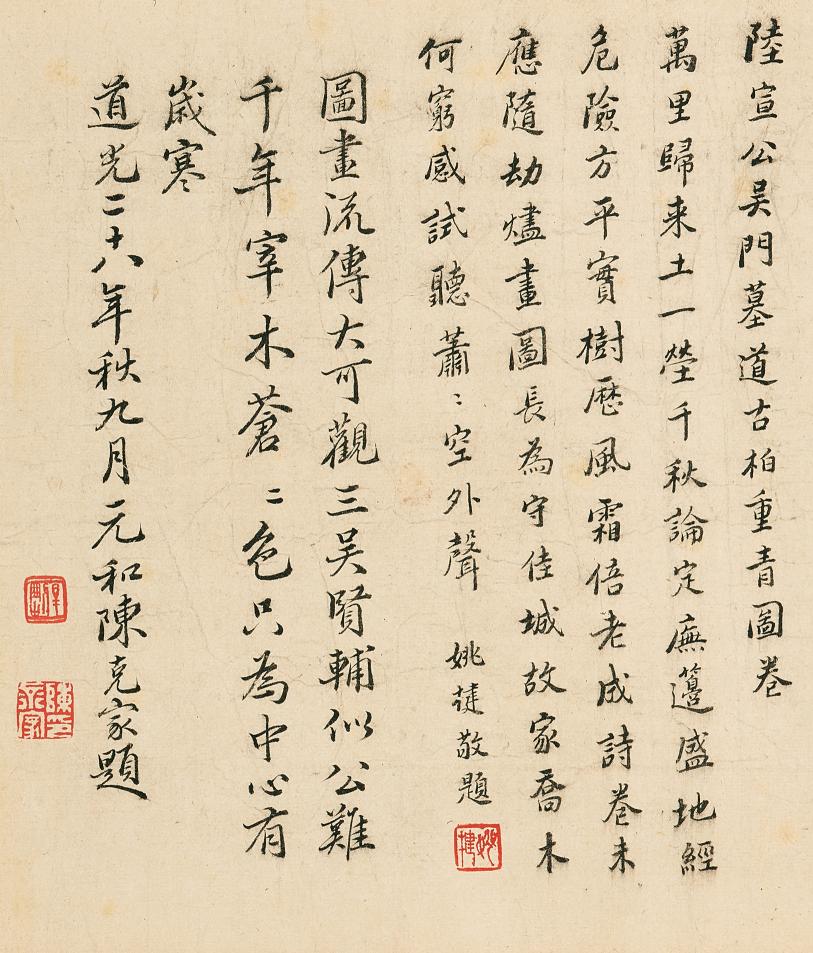 陸宣公吳門墓道古柏重青圖卷
萬里歸来土一塋千秋論定廡籩盛地經
危險方平實樹歷風霜倍老成詩卷未
應隨劫燼畫圖長為守佳城故家喬木
何窮感試聽蕭〻空外聲 姚揵敬題
圖畫流傳大可觀三吳賢輔似公難
千年宰木蒼〻色只為中心有
歲寒
道光二十八年秋九月元和陳克家題